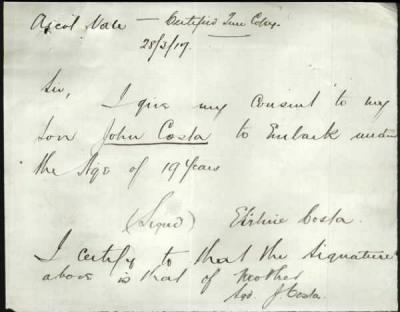 Ascot Vale — Certified True Copy.
28/3/17.
Sir,
I give my consent to my
son John Costa to Embark under
the Age of 19 Years
(Signed) Costa.
I certify to that the signature
above is that of Mother
Sgd. J Costa.